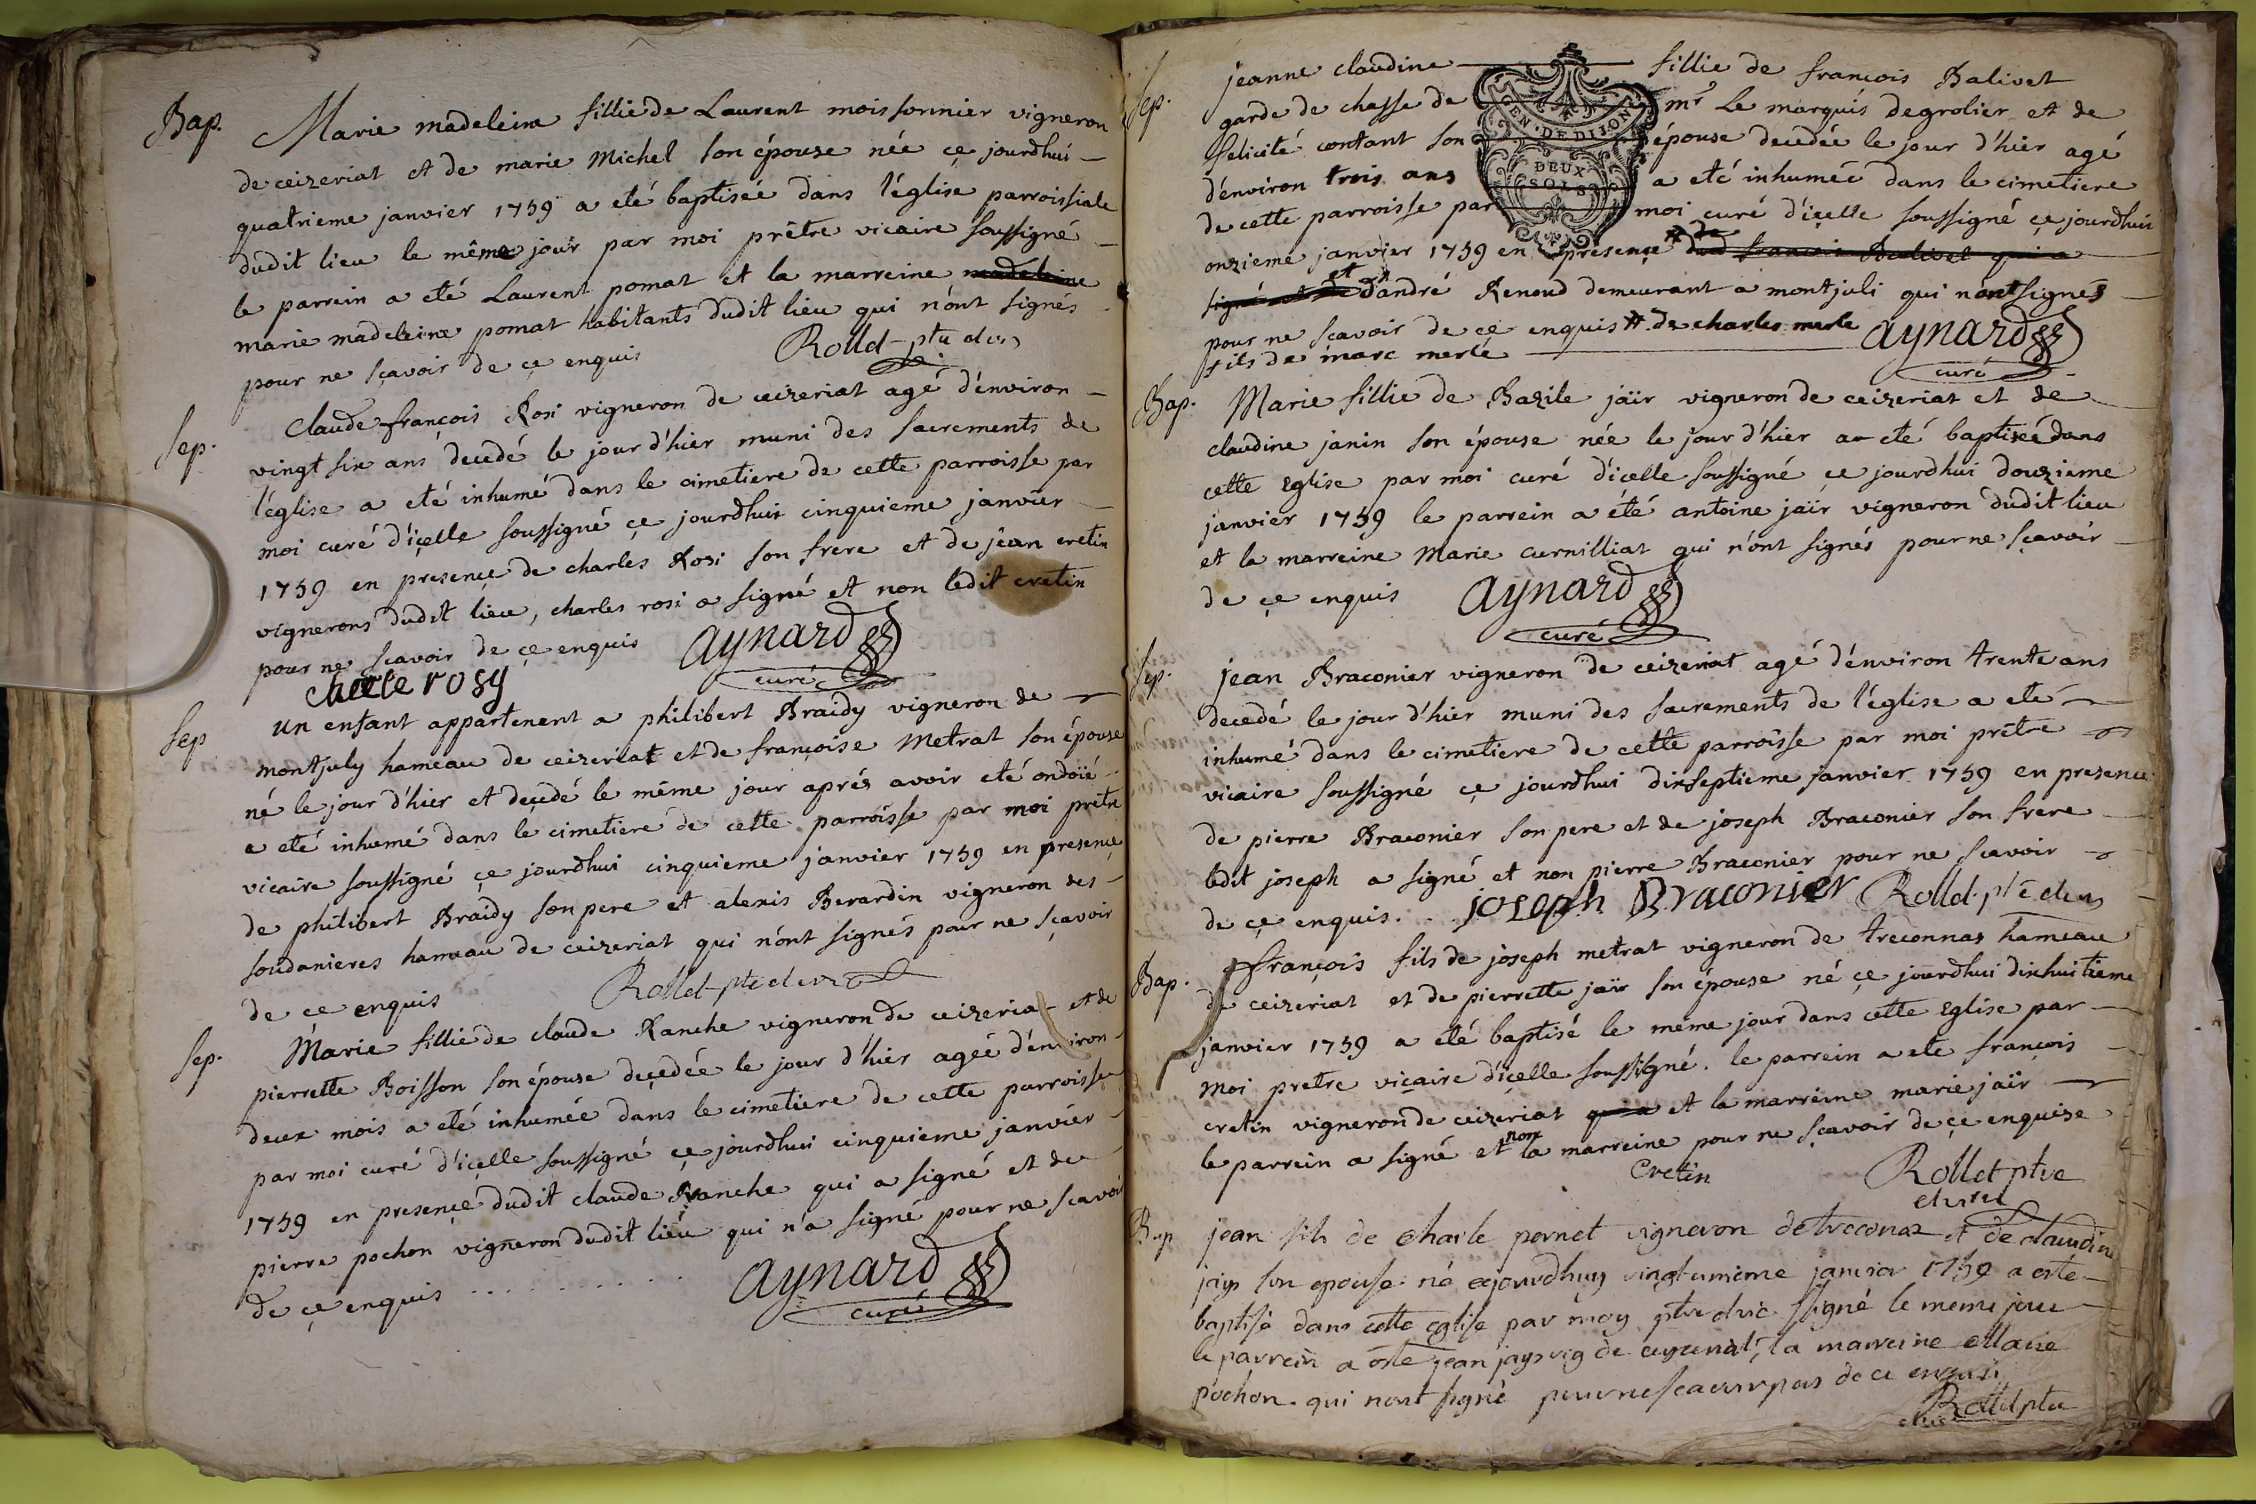 Bap. Marie madeleine fillie de Laurent moissonnier vigneron
de ceizeriat et de marie Michel son épouse née ce jourdhui
quatrieme janvier 1759 a eté baptisée dans l'église parroissiale
dudit lieu le même jour par moi prêtre vicaire soussigné
le parrein a eté Laurent pomat et la marreine madeleine
marie madeleine pomat habitants dudit lieu qui n'ont signés
pour ne sçavoir de çe enquis Rollet
Sep. Claude françois Rosi vigneron de ceizeriat agé d'environ
vingt six ans decedé le jour d'hier muni des sacrements de
l'église a eté inhumé dans le cimetiere de cette parroisse par
moi curé d'içelle soussigné çe jourdhui cinquieme janvier
1759 en presençe de charles Rosi son frere et de jean cretin
vignerons dudit lieu, charles rosi a signé et non ledit cretin
pour ne sçavoir de çe enquis aynard
curé
rosy
Sep un enfant appartenent a philibert Braidy vigneron de
montjuly hameau de ceizeriat et de françoise Metrat son épouse
né le jour d'hier et deçedé le même jour aprés avoir eté ondoïé
a eté inhumé dans le cimetiere de cette parroisse par moi prêtre
vicaire soussigné çe jourdhui cinquieme janvier 1759 en presençe
de philibert Braidy son pere et alexis Berardin vigneron des
soudanieres hameau de ceizeriat qui n'ont signés pour ne sçavoir
de ce enquis Rollet
Sep. Marie fillie de claude Ranche vigneron de ceizeriat et de
pierrette Boisson son épouse deçedée le jour d'hier agée d'environ
deux mois a eté inhumée dans le cimetiere de cette parroisse
par moi curé d'içelle soussigné çe jourdhui cinquieme janvier
1759 en presençe dudit claude Ranche qui a signé et de
pierre pochon vigneron dudit lieu qui n'a signé pour ne scavoir
de çe enquis aynard
curé
Sep. jeanne claudine fillie de françois Balivet
garde de chasse de mr Le marquis degrolier et de
felicité contant son épouse decedée le jour d'hier agé
d'environ trois ans a eté inhumée dans le cimetiere
GEN · DE DIJON
DEUX
SOLS
de cette parroisse par moi curé d'içelle soussigné çe jourdhui
onzieme janvier 1759 en présençe # de dud françois Balivet qui a
signé et de et d'andré Renoud demeurant a montjuli qui n'ont signés
pour ne sçavoir de çe enquis # de charles merle aynard
fils de marc merle curé
Bap. Marie fillie de Bazile jaïr vigneron de ceizeriat et de
claudine janin son épouse née le jour d'hier a eté baptiseé dans
cette Eglise par moi curé d'icelle soussigné ce jourdhui douzieme
janvier 1759 le parrein a été antoine jaïr vigneron dudit lieu
et la marreine Marie curnilliat qui n'ont signés pour ne sçavoir
de çe enquis aynard
curé
Sep. jean Braconier vigneron de ceizeriat agé d'environ trente ans
decedé le jour d'hier muni des sacrements de l'église a eté
inhumé dans le cimetiere de cette parroisse par moi prêtre
vicaire soussigné çe jourdhui dixseptieme janvier 1759 en presence
de pierre Braconier son pere et de joseph Braconier son frere
ledit joseph a signé et non pierre Braconier pour ne scavoir
de çe enquis. joseph Braconier Rollet
Bap. françois fils de joseph metrat vigneron de treconnas hameau
de ceizeriat et de pierrette jaïr son épouse né çe jourdhui dixhuitieme
janvier 1759 a eté baptisé le meme jour dans cette Eglise par
moi pretre vicaire d'içelle soussigné. le parrein a ete françois
cretin vigneron de ceizeriat qui a et la marreine marie jaïr
le parrein a signé et non la marreine pour ne sçavoir de çe enquise
cretin Rollet ptre
Bap jean fils de charle pernet vigneron de treconas et de claudine
jays son epouse né cejourdhuy vingtunieme janvier 1759 a esté
baptisé dans cette eglise par moy ptre signé le meme jour
le parrein a esté jean jays vig de ceyzeriat, la marreine Marie
pochon qui nont signé pour ne scavoir pas de ce enquis
Rollet ptre